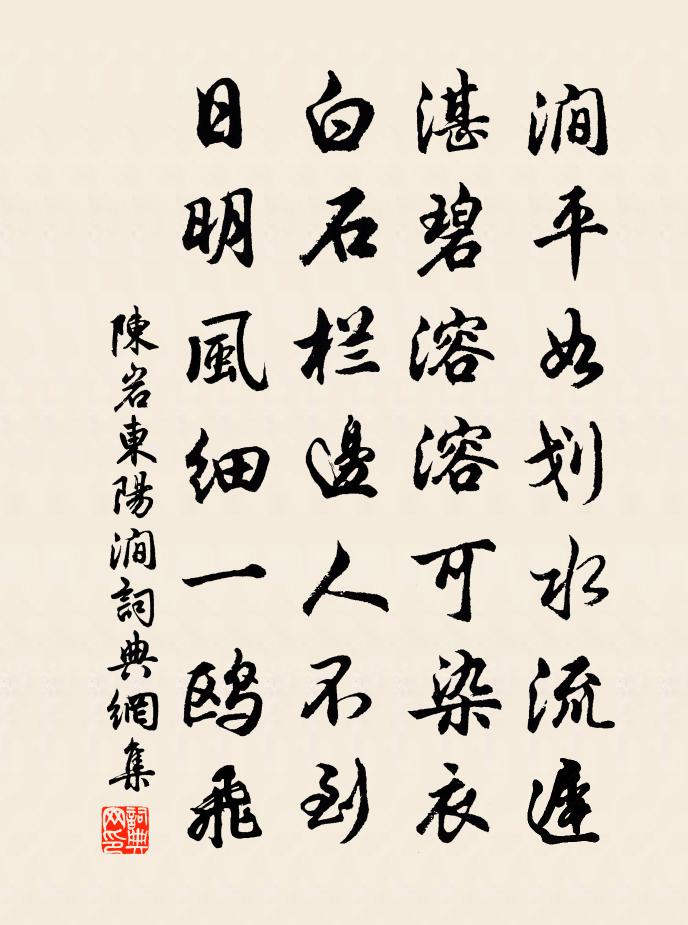 澗平如划水流遅
湛碧溶溶可染衣
白石栏邊人不到
日明風细一鸥飛
陳岩東陽澗詞典網集
詞典网印